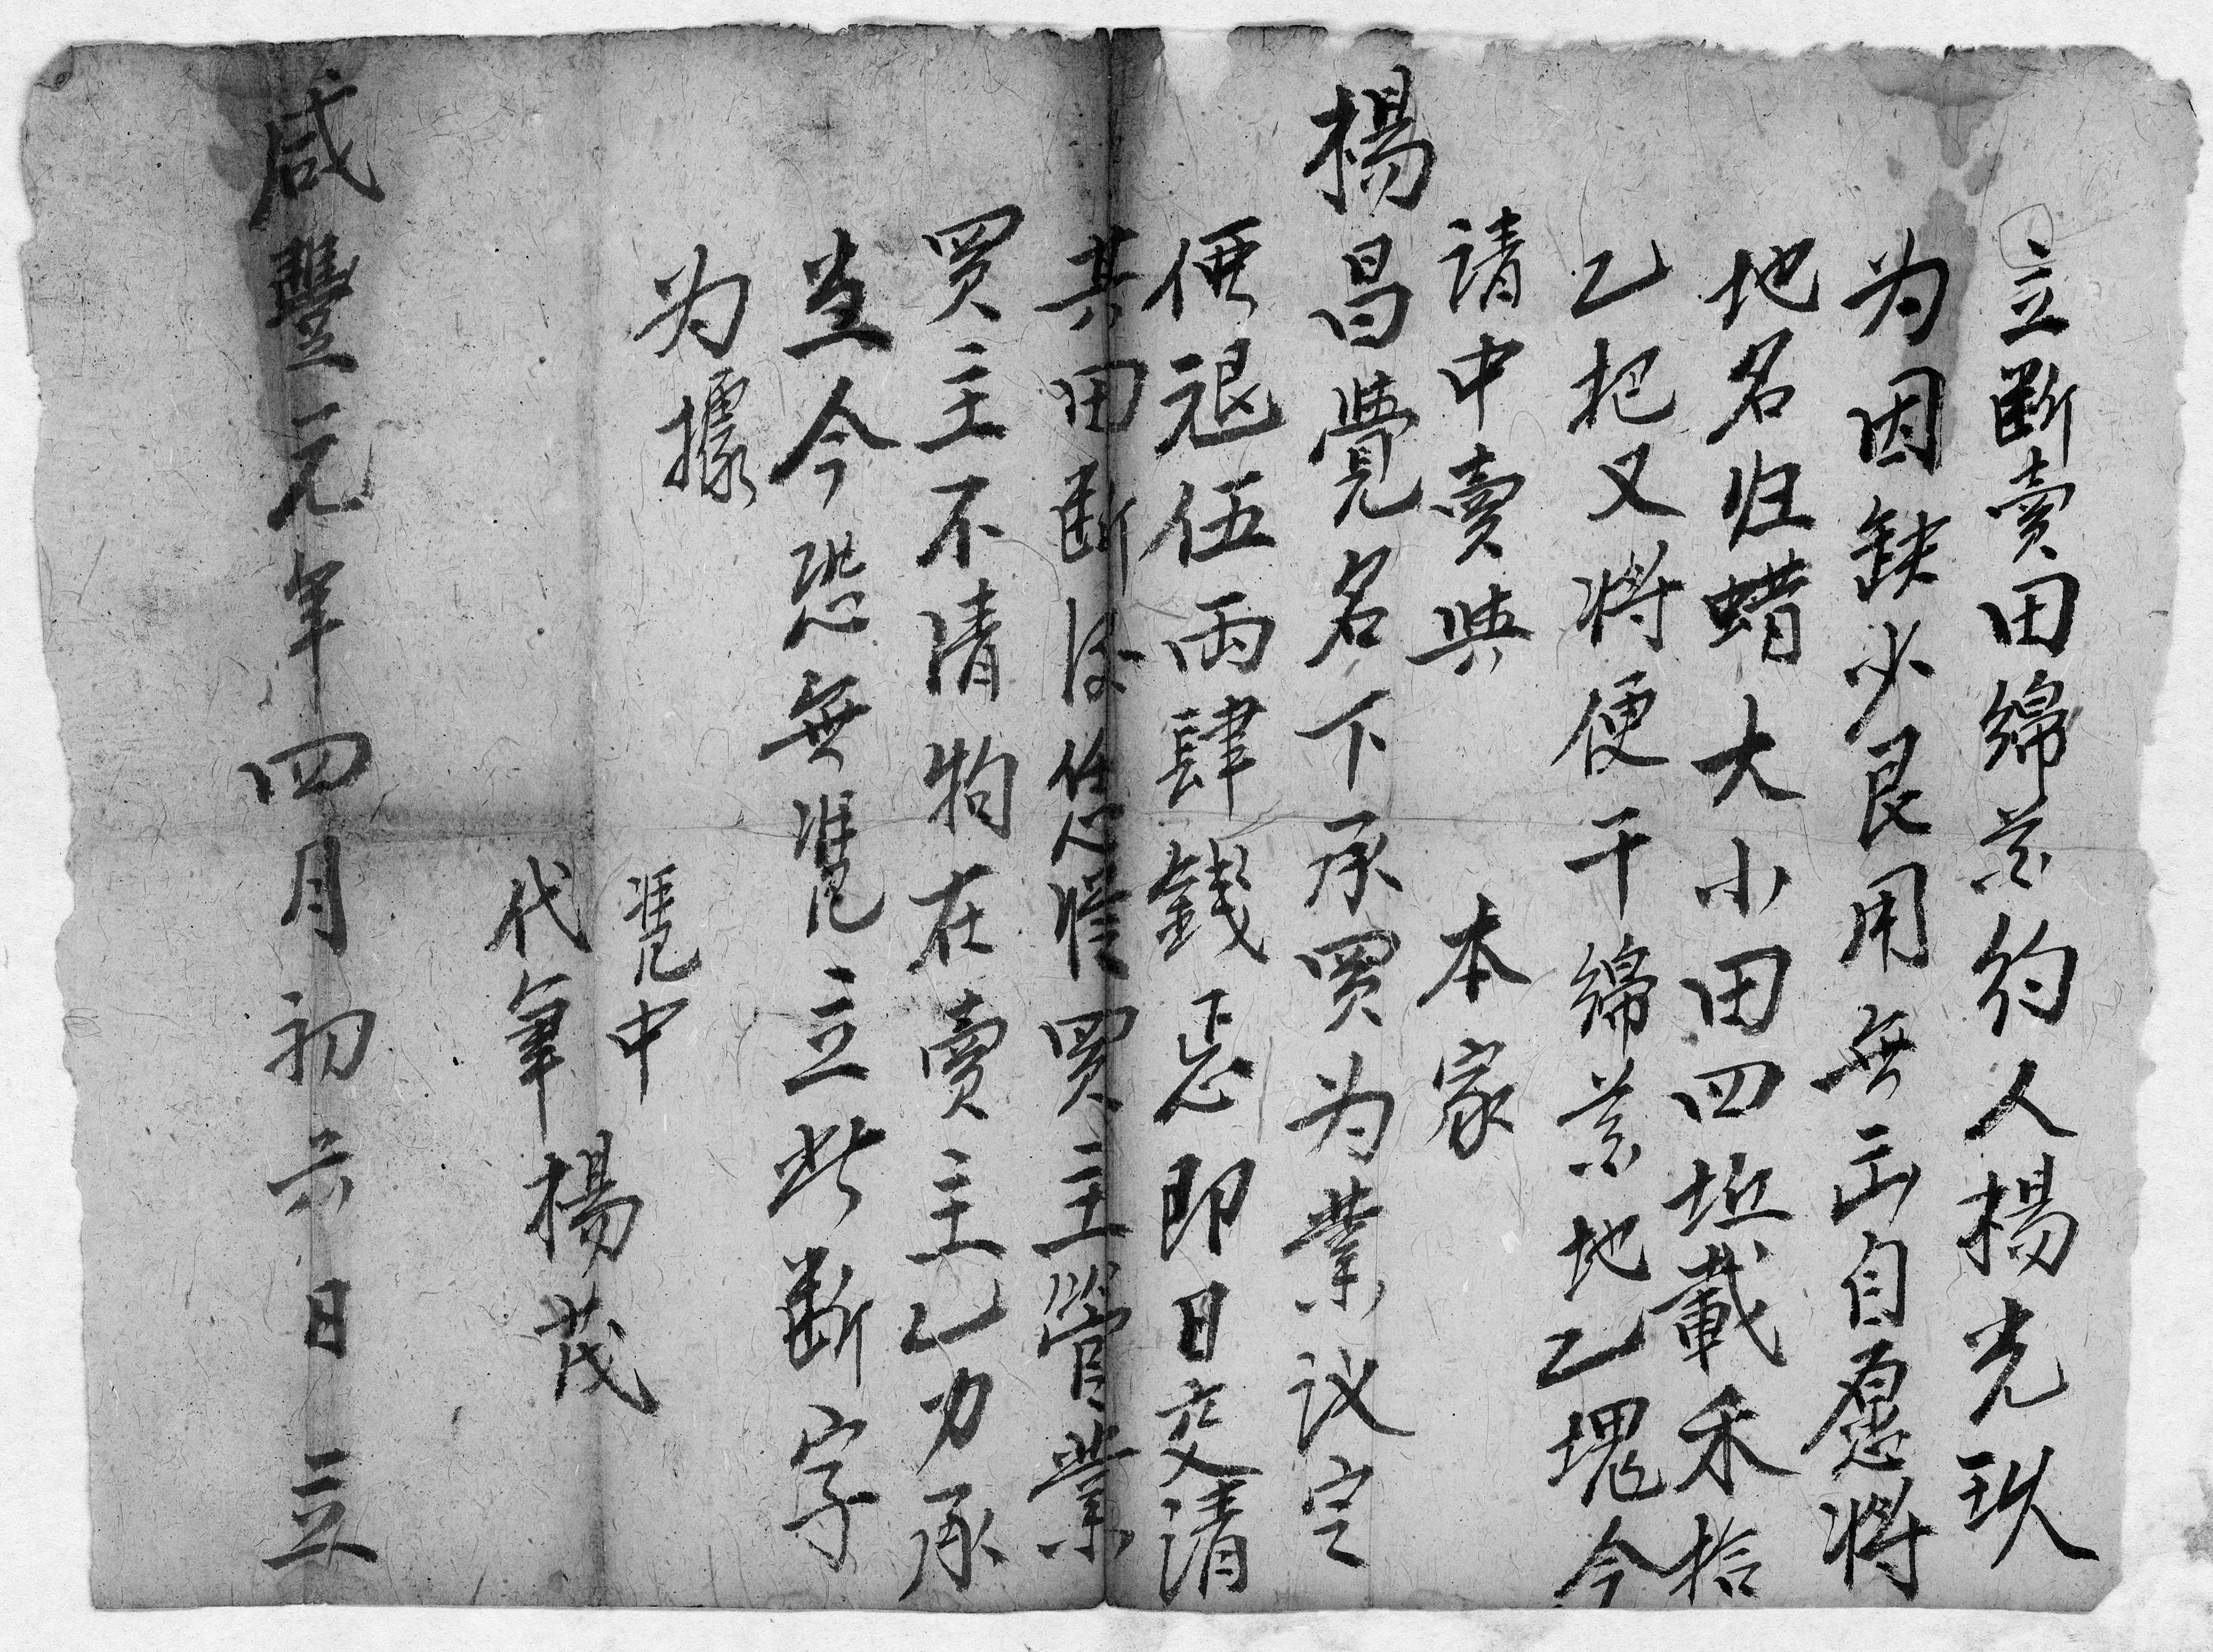 立断賣田綿花約人楊光玖
为因缺少艮用無出自愿将
地名归蜡大小田四坵載禾拾
乙把又将便干綿花地乙塊今
請中賣与　本家
楊昌覺名下承買为業议定
便退伍両肆錢　即日交清
其田断後任從買主管業
買主不清狗在賣主乙力承
当今恐無凴立此断字
为據
凴中
代筆　楊茂
咸豐元年四月初六日立